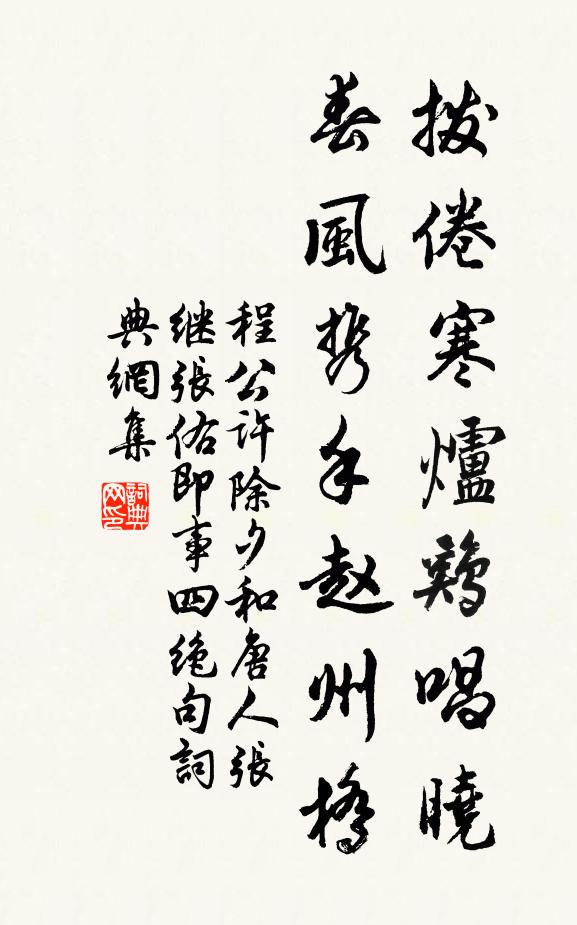 拨倦寒爐鷄唱曉
春風携手赵州橋
程公许除夕和唐人張
继張佑即事四绝句詞
典網集
詞典
网印